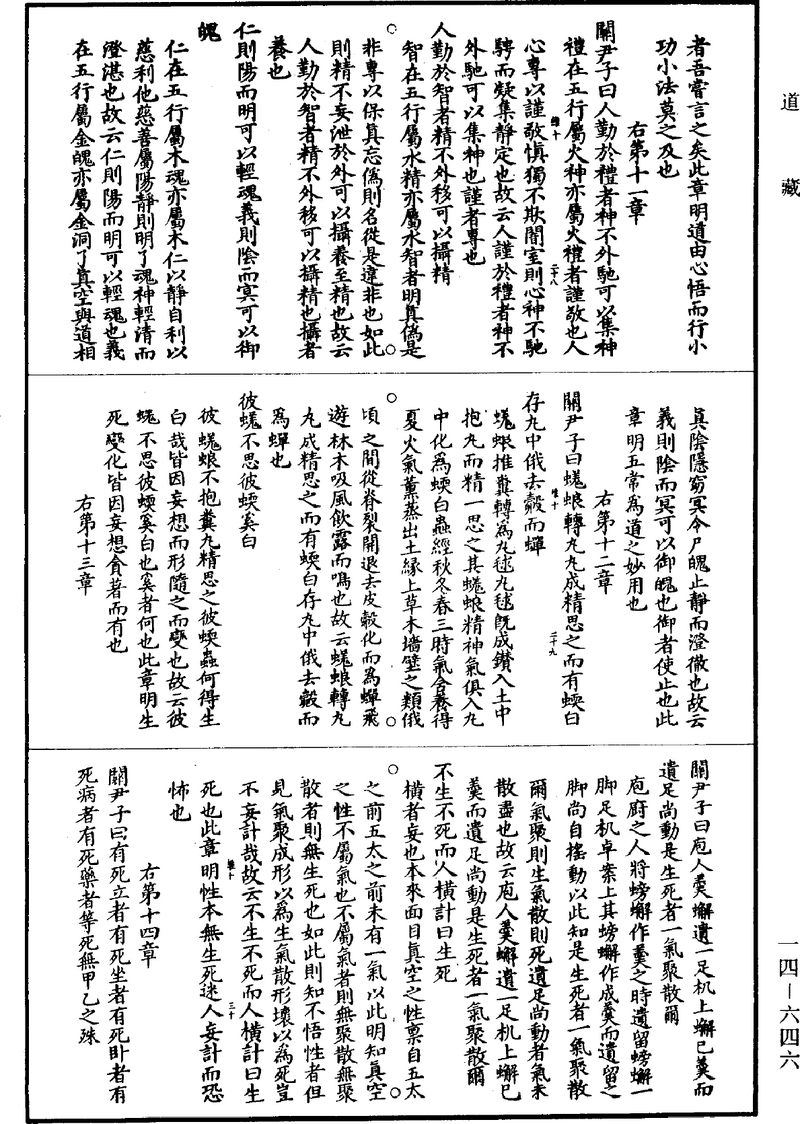 道藏
者吾嘗言之矣此章明道由心悟而行小
功小法莫之及也
右第十一章
關尹子曰人勤於禮者神不外馳可以集神
禮在五行屬火神亦屬火禮者謹敬也人
心專以謹敬愼獨不欺闇室則心神不馳
騁而凝集靜定也故云人謹於禮者神不
外馳可以集神也謹者專也
人勤於智者精不外移可以攝精
智在五行屬水精亦屬水智者明真偽是
非專以保真忘偽則名從是違非也如此
則精不妄泄於外可以攝養至精也故云
人勤於智者精不外移可以攝精也攝者
養也
仁則陽而明可以輕魂義則陰而冥可以御
魄
仁在五行屬木魂亦屬木仁以靜自利以
慈利他慈善屬陽靜則明了魂神輕清而
澄湛也故云仁則陽而明可以輕魂也義
在五行屬金魄亦屬金洞了真空與道相
真陰隱窈冥令尸魄止靜而澄徹也故云
義則陰而冥可以御魄也御者使止也此
章明五常爲道之妙用也
右第十二章
關尹子曰蜣蜋轉丸丸成精思之而有蝡白
存丸中俄去殼而蟬
蜣蜋推糞轉爲丸毬丸毬旣成鑽入土中
抱丸而精一思之其蜣蜋精神氣俱入丸
中化爲蝡白蟲經秋冬春三時氣含養得
夏火氣薰蒸出土緣上草木墻壁之類俄
頃之間從脊裂開退去皮殼化而爲蟬飛
遊林木吸風飲露而鳴也故云蜣蜋轉丸
丸成精思之而有蝡白存丸中俄去殼而
爲蟬也
彼蜣不思彼蝡奚白
彼蜣蜋不抱糞丸精思之彼蝡蟲何得生
白哉皆因妄想而形隨之而變也故云彼
蜣不思彼蝡奚白也奚者何也此章明生
死變化皆因妄想貪著而有也
右第十三章
關尹子曰庖人羹蠏遺一足机上蠏已羹而
遺足尚動是生死者一氣聚散爾
庖廚之人將螃蠏作羹之時遺留螃蠏一
脚足机卓案上其螃蠏作成羹而遺留之
脚尚自搖動以此知是生死者一氣聚散
爾氣聚則生氣散則死遺足尚動者氣未
散盡也故云庖人羹蠏遺一足机上蠏已
羹而遺足尚動是生死者一氣聚散爾
不生不死而人橫計曰生死
橫者妄也本來面目真空之性禀自五太
之前五太之前未有一氣以此明知真空
之性不屬氣也不屬氣者則無聚散無聚
散者則無生死也如此則知不悟性者但
見氣聚成形以爲生氣散形壞以爲死豈
不妄計哉故云不生不死而人橫計曰生
死也此章明性本無生死迷人妄計而恐
怖也
右第十四章
關尹子曰有死立者有死坐者有死臥者有
死病者有死藥者等死無甲乙之殊
一四—六四六